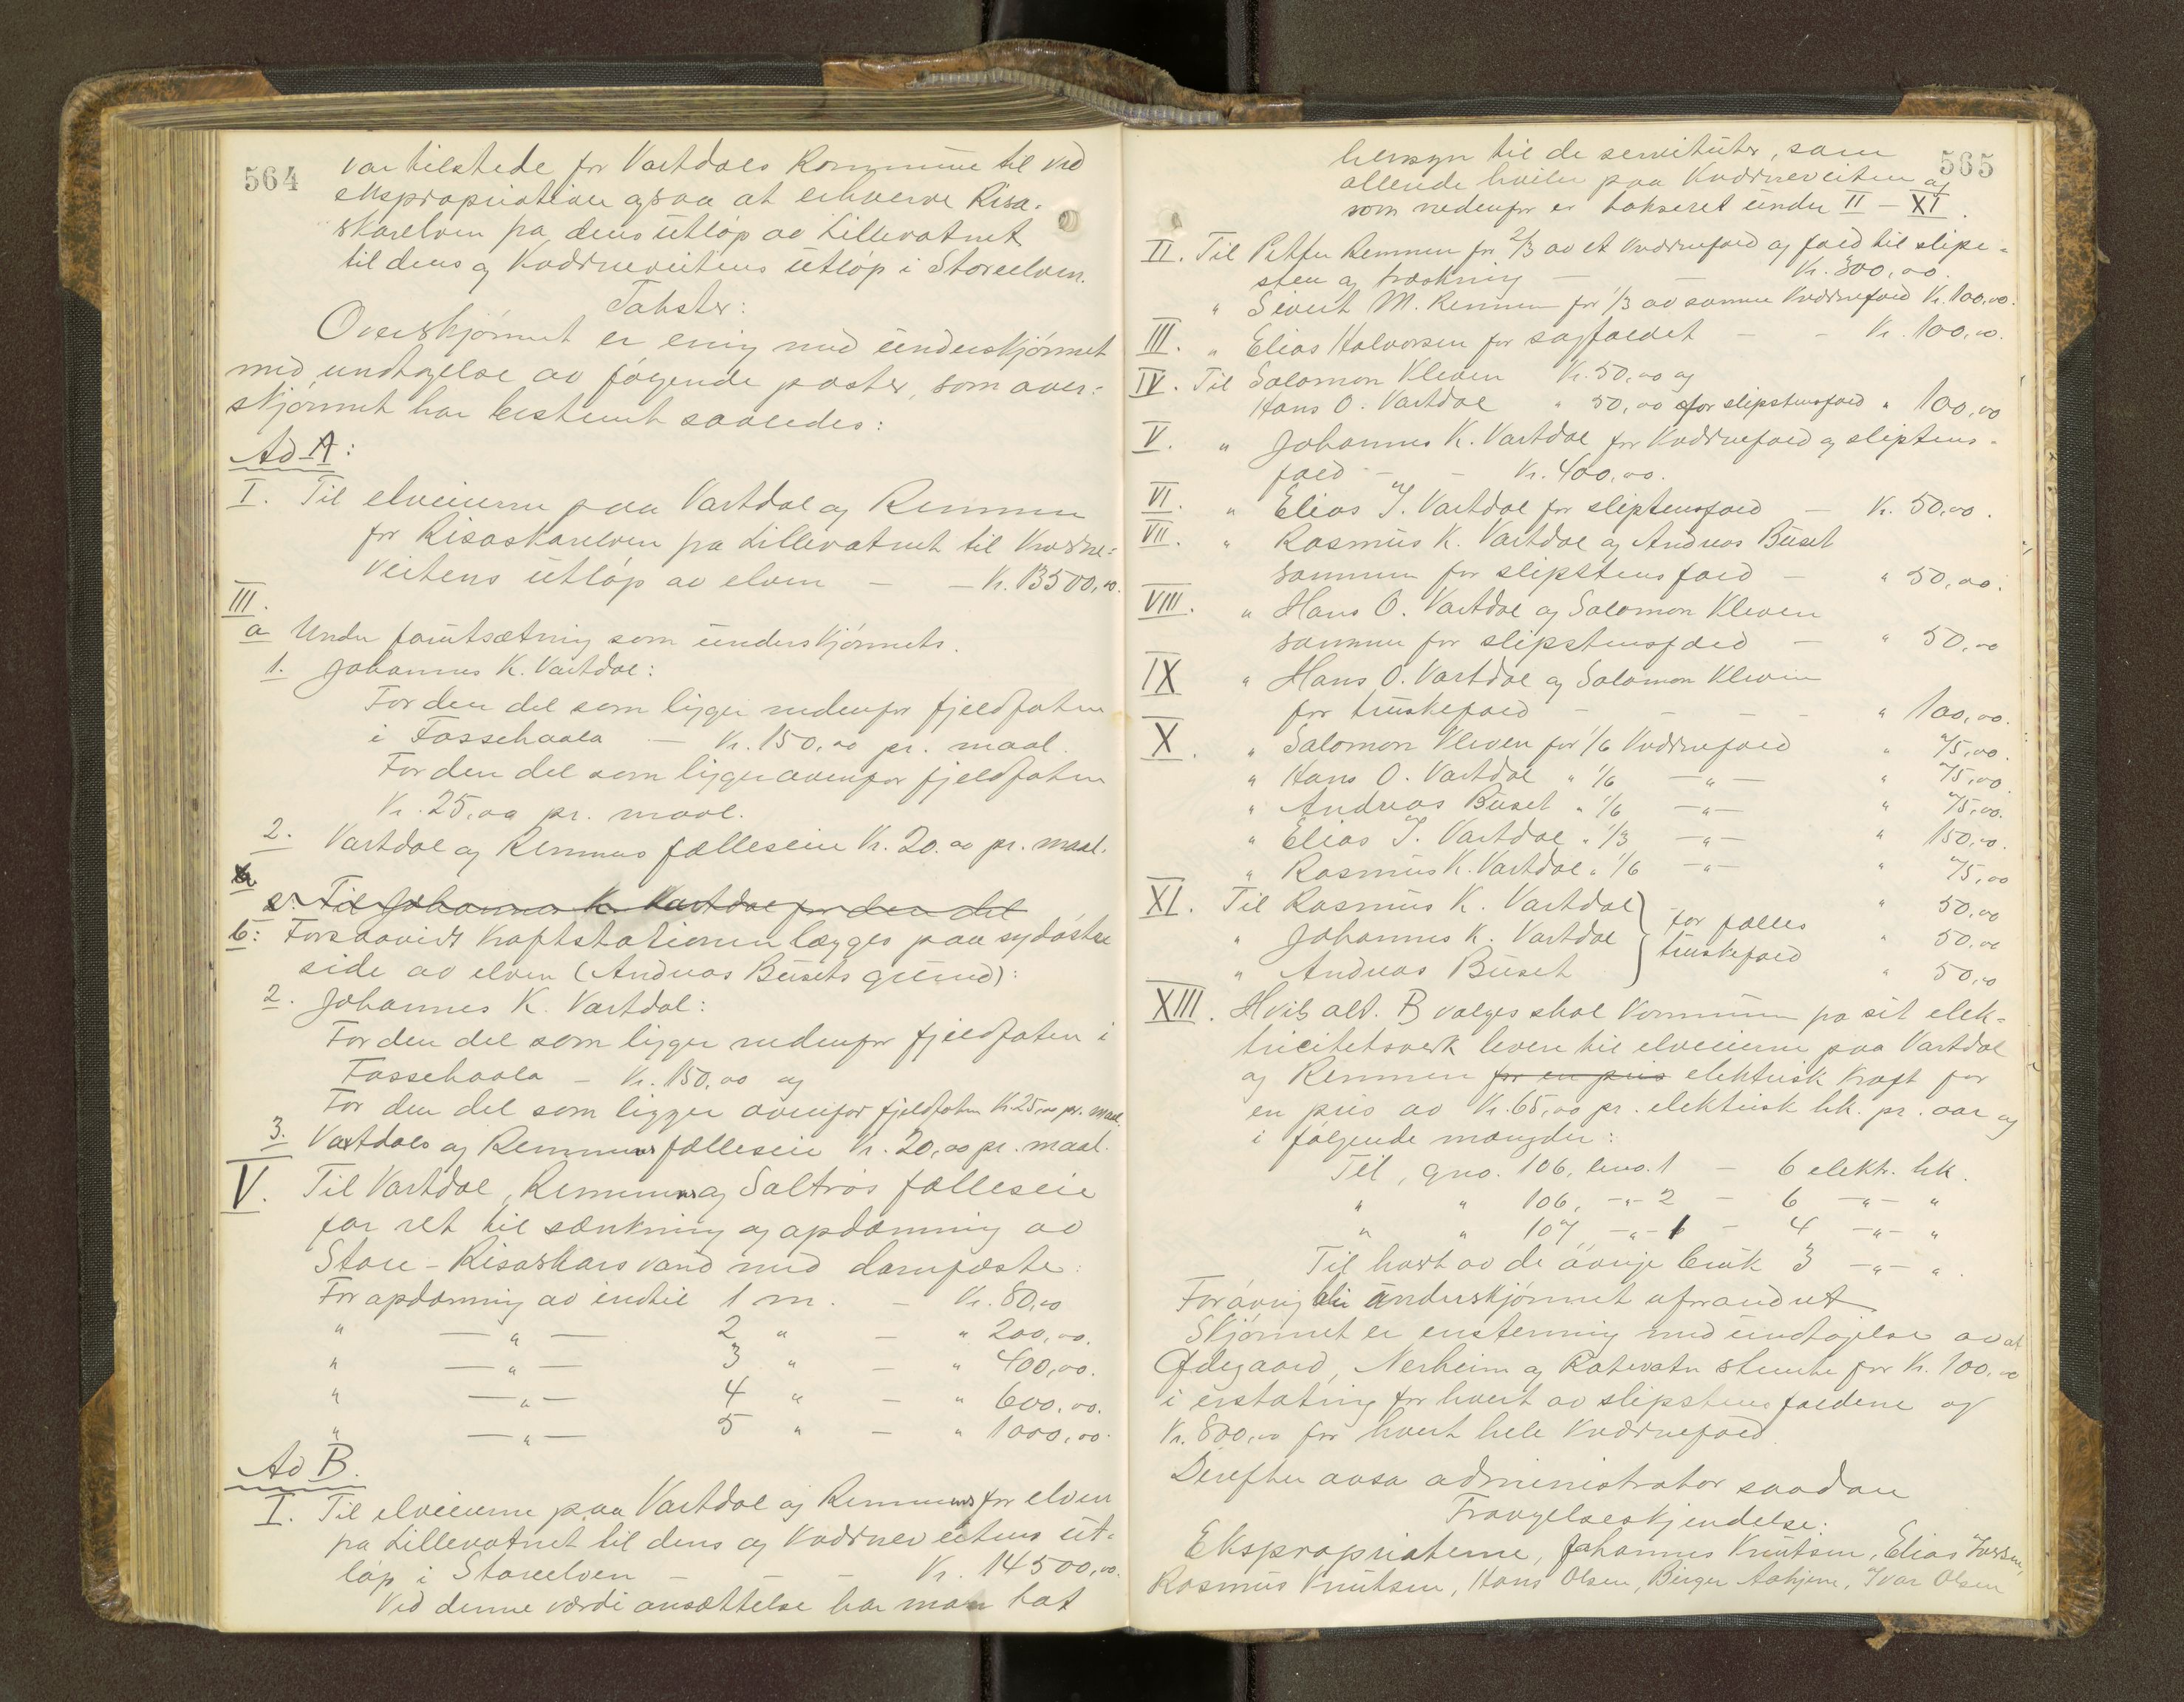 564
var tilstede for Vartdals kommune til ved
ekspropriation ogsaa at erhverve Risa-
skarelven fra dens utløp av Lillevatnet
til dens og Kværneveitens utløp i Storeelven.
Takster:
Overskjønnet er enig med underskjønnet
med undtagelse av følgende poster, som over-
skjønnet har bestemt saaledes:
Ad A:
I. Til elveierne paa Vartdal og Remmen
for Risaskarelven fra Lillevatnet til Kværne-
veitens utløp av elven — — Kr. 13500,00.
III.
a Under forutsætning som underskjønnets.
1. Johannes K. Vartdal:
For den del som ligger nedenfor fjeldfoten
i Fossehaala — Kr. 150,00 pr. maal.
For den del som ligger ovenfor fjeldfoten
Kr. 25,00 pr. maal.
2. Vartdal og Remmens fælleseie Kr. 20.00 pr. maal.
2. Til Johannes K. Vartdal for den del
b: Forsaavidt kraftstationen lægges paa sydøstre
side av elven (Andreas Busets grund):
2. Johannes K. Vartdal:
For den del som ligger nedenfor fjeldfoten i
Fossehaala – Kr. 150,00 og
For den del som ligger ovenfor fjeldfoten Kr 25,00 pr. maal.
3. Vartdals og Remmens fælleseie Kr. 20,00 pr. maal.
V. Til Vartdal, Remmens og Saltrøs fælleseie
for ret til sænkning og opdæmning av
Store-Risaskars vand med damfæste:
For opdæmning av indtil 1 m. – Kr. 80,00
" — " — 2 " – " 200,00.
" — " — 3 " – " 400,00.
" — " — 4 " – " 600,00.
" — " — 5 " – " 1000,00.
Ad B.
I. Til elveierne paa Vartdal og Remmens for elven
fra Lillevatnet til dens og Kværneveitens ut-
løp i Storeelven – – – Kr. 14500,00.
Ved denne værdiansættelse har man tat
565
hensyn til de servituter, som
allende hviler paa Kværneveiten og
som nedenfor er takseret under II – XI.
II. Til Petter Remmen for 2/3 av et kværnefald og fald til slipe-
sten og træskning — — Kr. 300,00.
" Sivert M. Remmen for 1/3 av samme kværnefald Kr. 100,00.
III. " Elias Halvorsen for sagfaldet – – Kr. 100,00.
IV. Til Salomon Kleven Kr. 50,00 og
Hans O. Vartdal " 50,00 for slipstensfald " 100,00
V. " Johannes K. Vartdal for kværnefald og sliptens-
fald – – Kr. 400,00.
VI. " Elias J. Vartdal for sliptensfald – Kr. 50,00.
VII. " Rasmus K. Vartdal og Andreas Buset
sammen for slipstensfald – " 50,00.
VIII. " Hans O. Vartdal og Salomon Kleven
sammen for slipstensfald – " 50,00
IX " Hans O. Vartdal og Salomon Kleven
for truskefald – – – " 100,00.
X. " Salomon Kleven for 1/6 kværnefald " 75,00.
" Hans O. Vartdal " 1/6 – " – " 75,00.
" Andreas Buset " 1/6 – " – " 75,00.
" Elias J. Vartdal " 1/3 – " – " 150,00.
" Rasmus K. Vartdal " 1/6 – " – " 75,00
XI. Til Rasmus K. Vartdal " 50,00
" Johannes K. Vartdal for fælles " 50,00
" Andreas Buset truskefald " 50,00
XIII. Hvis alt. B vælges skal kommunen fra sit elek-
tricitetsverk levere til elveierne paa Vartdal
og Remmen for en pris elektrisk kraft for
en pris av Kr. 65,00 pr. elektrisk hk. pr. aar og
i følgende mængder:
Til, gno. 106, bno. 1 – 6 elektr. hk.
" " 106, – " – 2 – 6 – " – "
" " 107 – " – 1 – 4 – " – "
Til hvert av de øvrige bruk 3 – " – ".
Forøvrig blir underskjønnet uforandret
Skjønnet er enstemmig med undtagelse av at
Ødegaard, Nerheim og Rotevatn stemte for Kr. 100,00
i erstatning for hvert av slipstensfaldene og
Kr. 800,00 for hvert hele kværnefald
Derefter avsa administrator saadan
Fravigelseskjendelse:
Ekspropriaterne, Johannes Knutsen, Elias Iversen,
Rasmus Knutsen, Hans Olsen, Birger Aakjem, Ivar Olsen